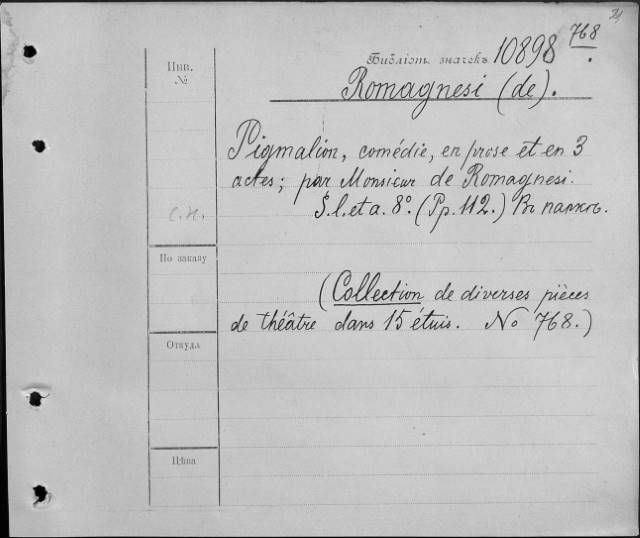 24
Инв.
№
Библіот. значекъ 10898 768.
Romagnesi (de).
Pigmalion, comédie, en prose et en 3
actes; par Monsieur de Romagnesi.
S. l. et a. 8°. (Pp. 112.) Въ папкѣ.
С.Н.
По заказу
(Collection de diverses pièces
de théâtre dans 15 étuis. No 768.)
Откуда
Цѣна